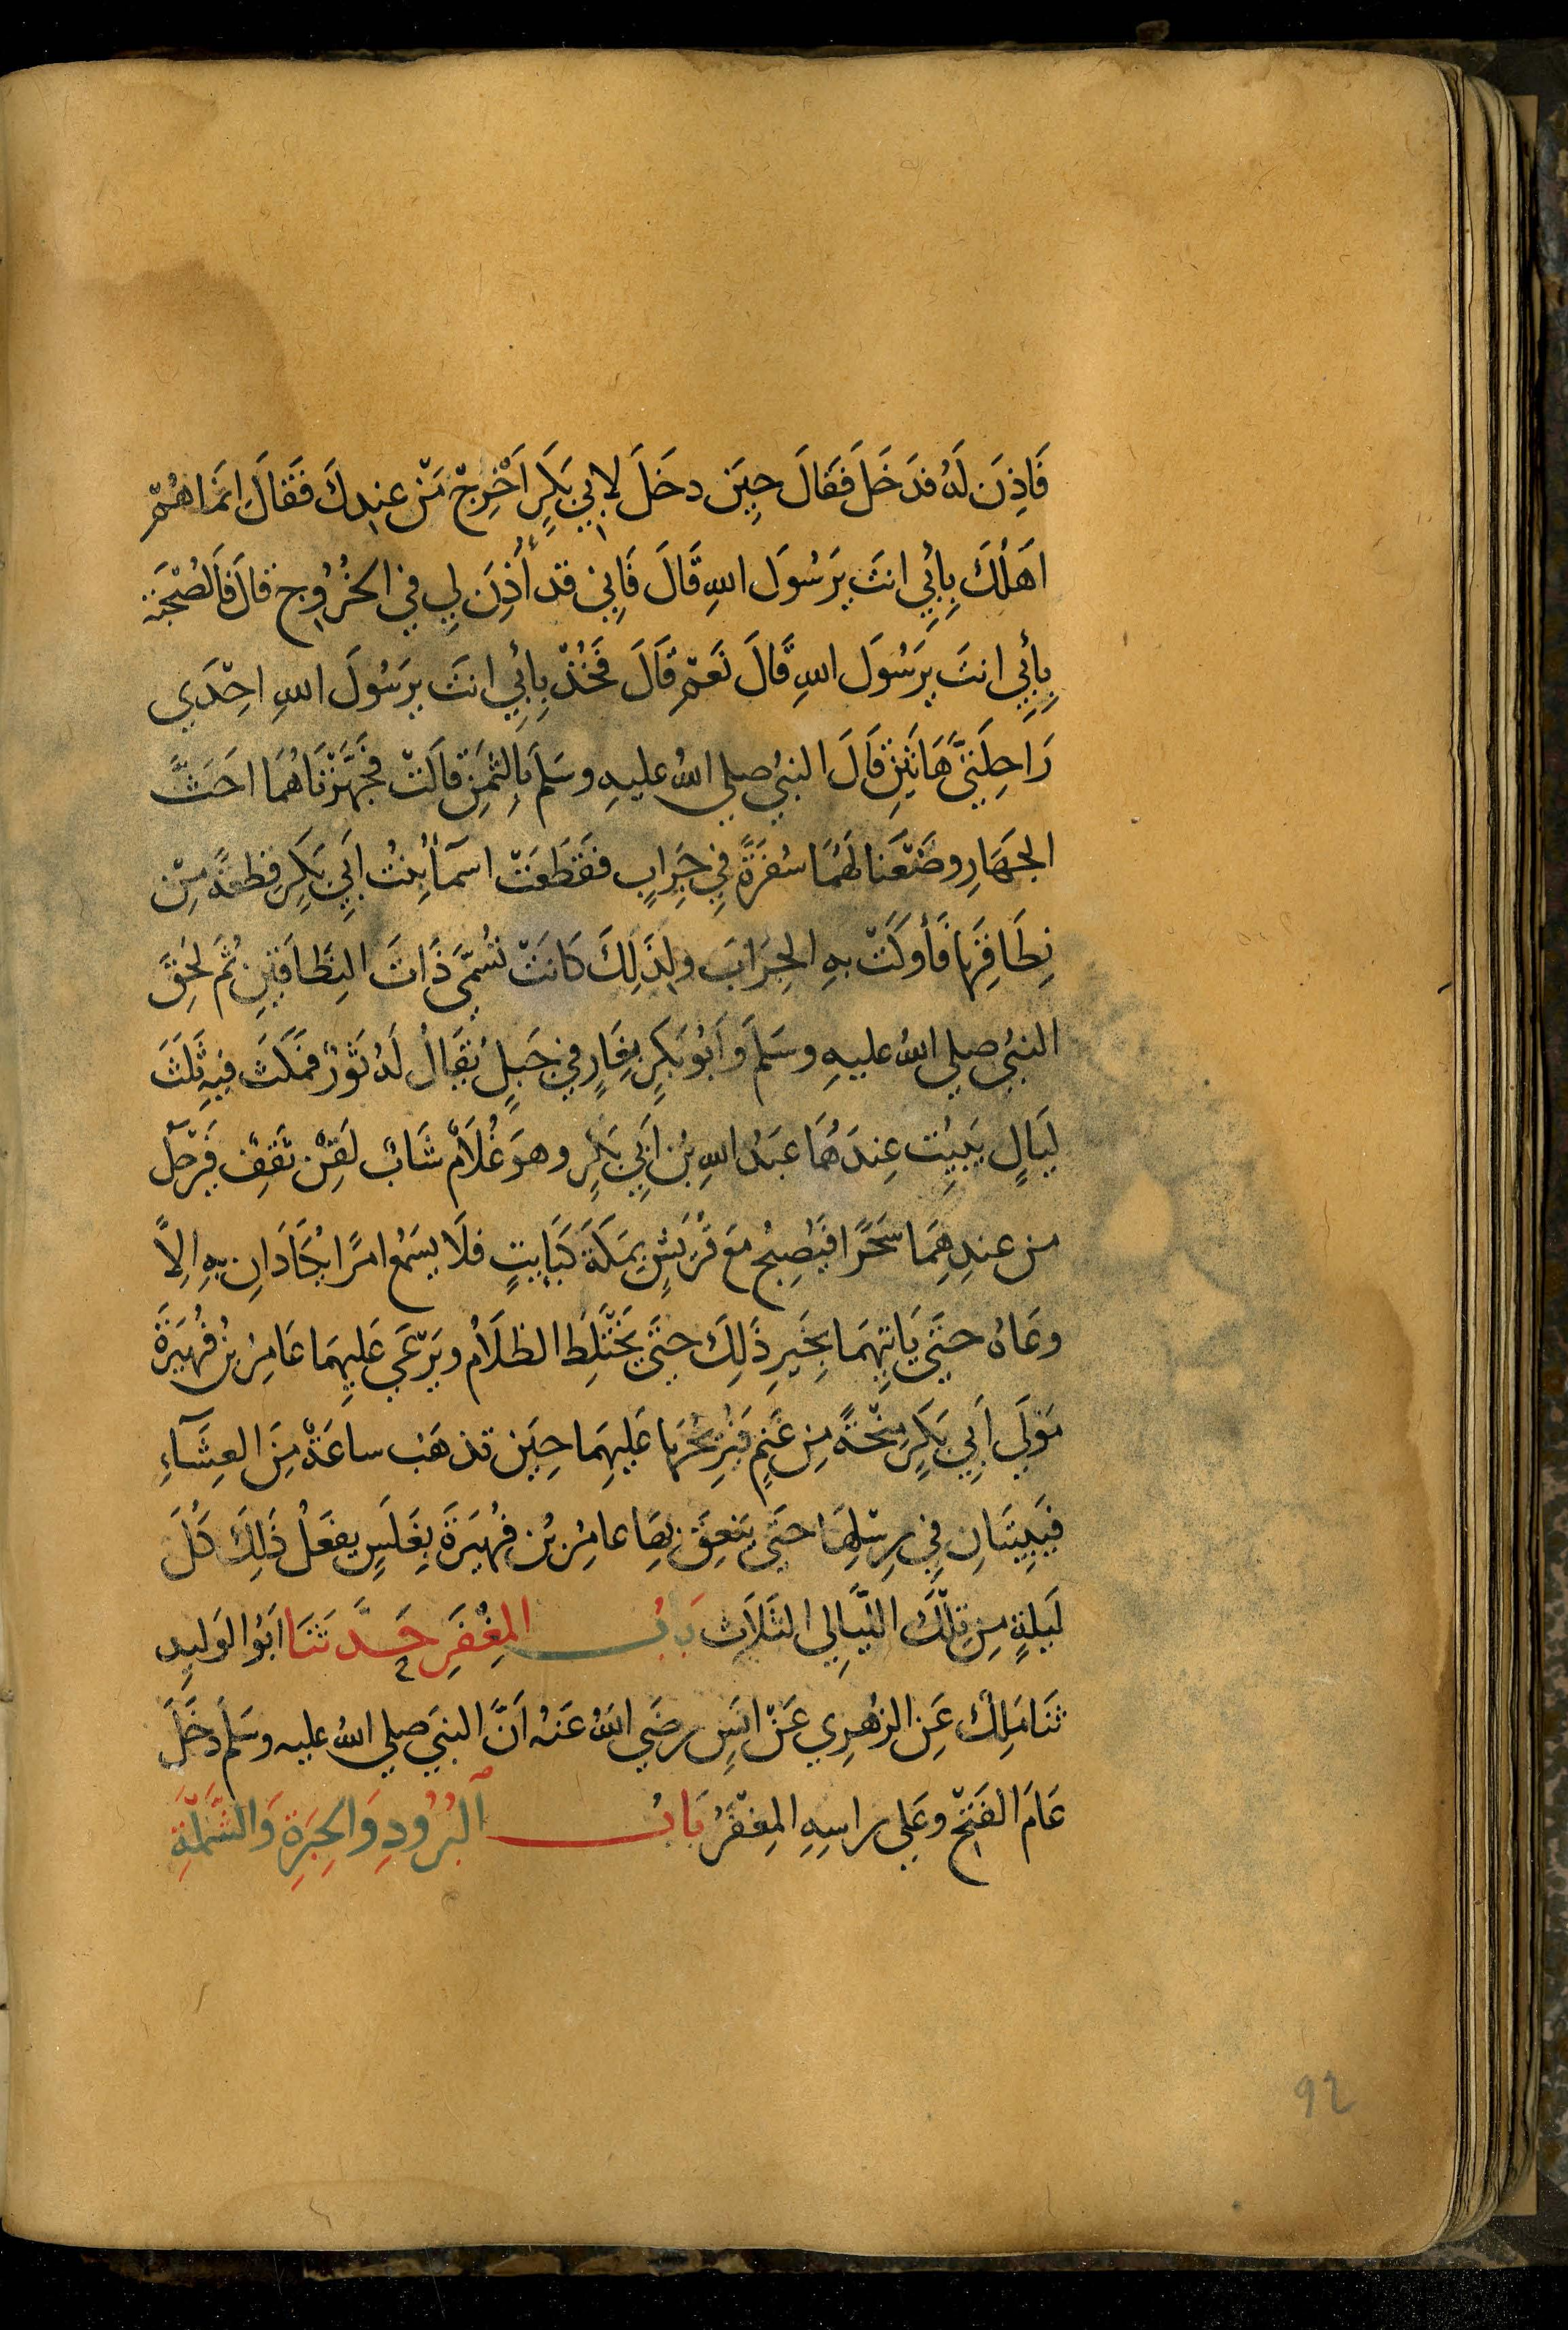 فَاذِنَ لَهُ فدَخَلَ فَقَالَ حِيَن دخَلَ لابي بَكَرٍ اَخْرِجْ مَنْ عندكَ فَقالَ انمَاهُمْ
اَهَلُكَ بِابِي انتَ يرَسُولَ اللهِ قَالَ فَاِني قد أُذِنَ لِي في الخُرُوج قالَ فَالصُحْبَة
بِابِي انتَ يرَسُولَ اللهِ قَالَ نَعَمْ قَالَ فَخُذْ بِابِي انتَ يرَسُولَ اللهِ احِْدَي
رَاحِلَتيَّ هَاتَينِ قَالَ النبيُ صلي اللهُ عليهِ وسَلمَ بِالثمَنِ قالَتْ فجَهَّزْنَاهُمَا احَثَّ
الجَهَازِ وضَنْعَنا لهُمَا سُفرَةً فِي جِرَابٍ فقَطَعَتْ اسمَآُ بنتُ اَبي بَكَرٍ قطعةً مِنْ
نِطَاقِهَا فَأوكَتْ بهِ الجِرَابَ ولِذَلِكَ كانَتْ تُسَمَّي ذَاتَ النِطَاقَينِ ثُم لَحِقَ
النبيُ صلي اللهُ عليهِ وسَلمَ وَاَبُو بَكرٍ بِغَارٍ في جَبلٍ يُقَالُ لَهُ ثَوْرٌ فمَكَثَ فيهِ ثَلَثَ
لَيَالٍ يَبيِتُ عِندَهُمَا عَبدُ اللهِ بْنُ اَبِي بَكرٍ وهوَ غُلَامٌ شَابٌ لَقِنٌ ثَقِفٌ فَيرْحَلُ
من عندِهِمَا سَحَرًا فَيُصبِحُ مَعَ قُرَيشٍ بِمَكَةَ كَبَايتٍ فلَا يسَمعُ امرًا يُكَادَانِ بهِ اِلَّا
وعَاهُ حتَي يَاتِيهمَا بِخَيرِ ذَلِكَ حتَي يَخْتَلِطَ الظلَامُ ويَرْعَي عَليهِمَا عَامِرُ بنُ فُهَيرَة
مَوْلَي اَبِي بَكَرٍ مِنْحَةً مِن غَنمٍ فَيُرِيحُهَا عَليهِمَا حِيَن تذهَبُ ساعَةٌ مِنَ العِشَآءِ
فَيَبِيتَانِ فِي رِسْلِهَا حتَي يَنعِقَ بهَا عامِرُ بْن فُهَيرَةَ بِغَلَسٍ يفعَلُ ذَلِكَ كُلَ
لَيلةٍ مِن تِلْكَ اللّيَالِي الثَلاَثِ بَابُ المِغْفَرِ حَدَّثَنَا ابَوُا لوَليدِ
ثنَا مَلِكٌ عَنِ الزُهرِي عَنْ انَسٍ رضَي اللهُ عَنهُ اَنَّ النبيَ صلي اللهُ عليه وسَلمَ دخَلَ
عَامَ الفَتحِ وعَلي راسِهِ المِغْفَرُ بَابُ البُرُودِ وَالحِبَرَةِ وَالشَّمْلَةِ
92